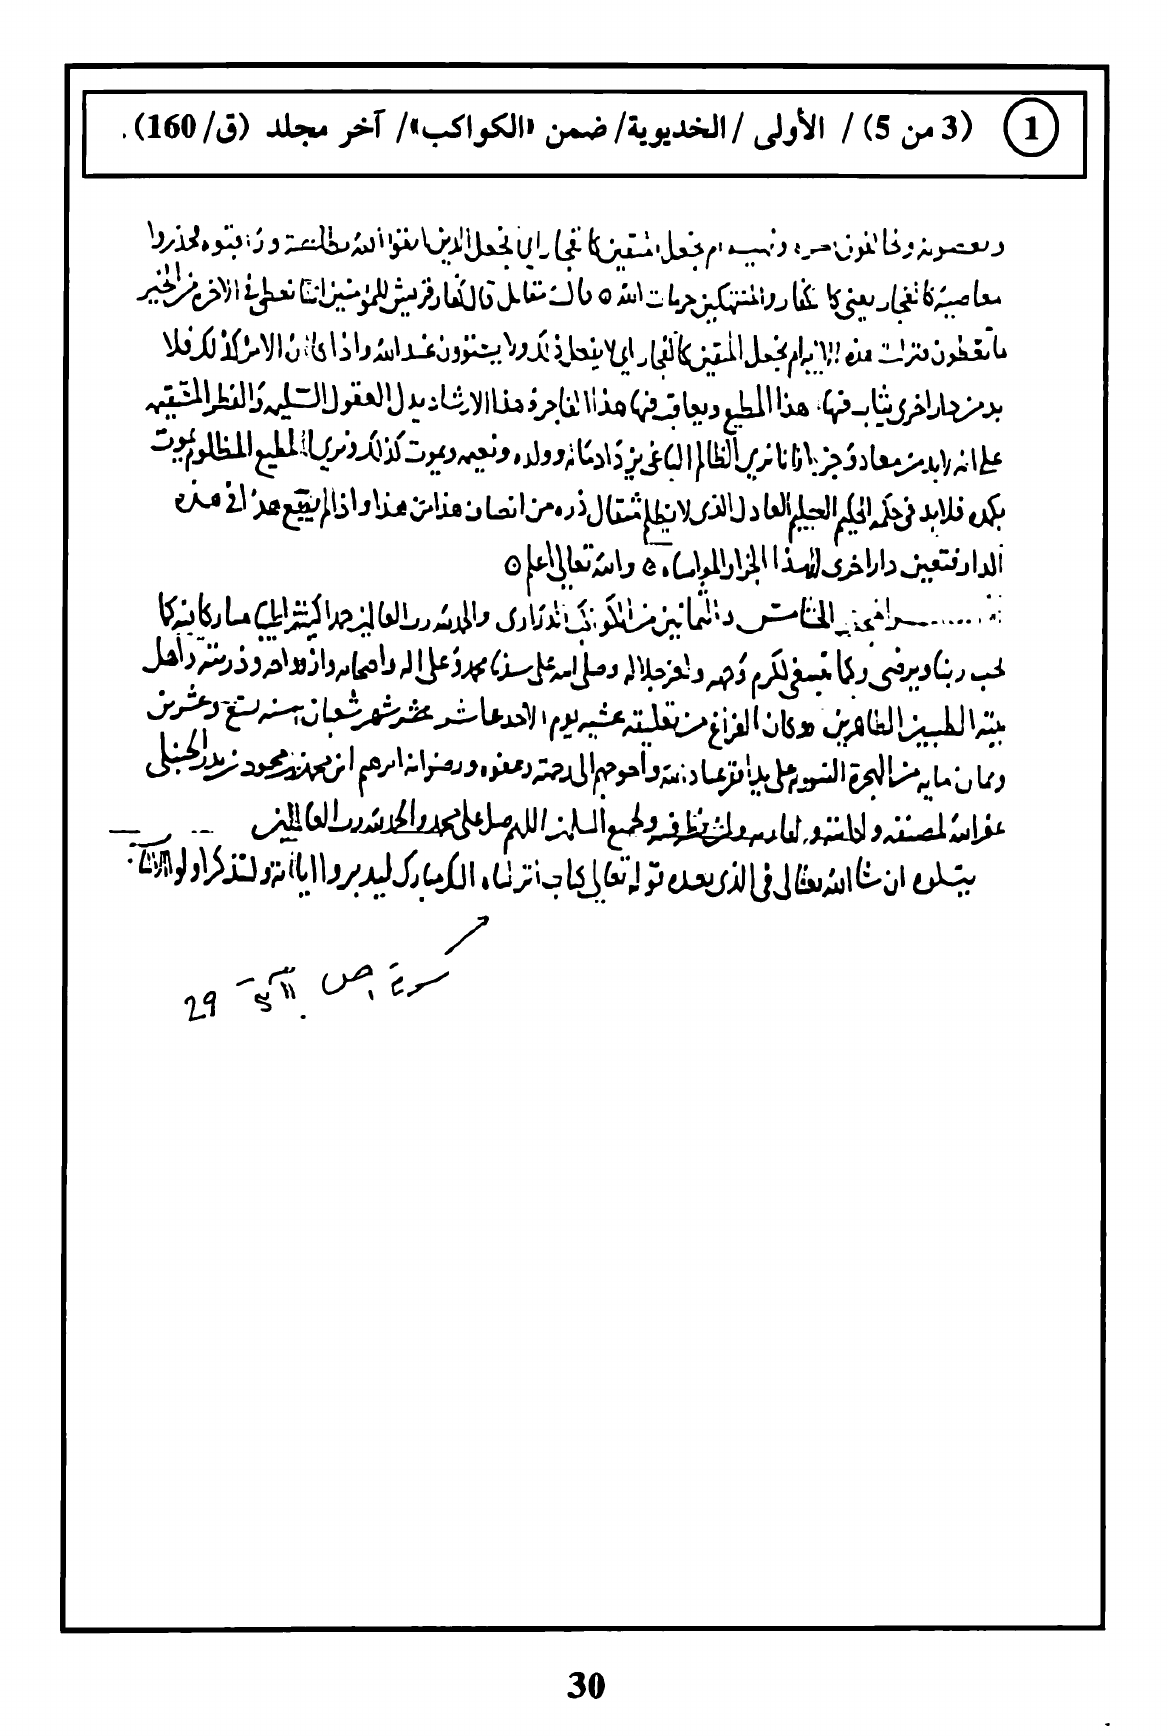 1 (3 من 5) / الأولى / الخديوية/ ضمن «الكواكب»/ آخر مجلد (ق/ 160).
ويعصونه ويخالفون امره ونهيه ام نجعل المتقين كالفجار اي نجعل الذين اتقوا الله بطاعته وراقبوه فحذروا
معاصيه كالفجار يعني كالكفار والمنتهكين حرمات الله ٥ قال مقاتل قال كفار قريش للمؤمنين انا نعطى في الاخرة من الخير
ما تعطون فنزلت هذه الاية ام نجعل المتقين كالفجار اي لا نفعل ذلك ولا يستوون عند الله واذا كان الامر كذلك فلا
بد من دار اخرى يثاب فيها هذا المطيع ويعاقب فيها هذا الفاجر وهذا الارشاد يدل العقول السليمة والفطر المستقيمة
على انه لا بد من معاد وجزا فانا نرى الظالم الباغي يزداد ماله وولده ونعيمه ويموت كذلك ونرى المطيع المظلوم يموت
بكمده فلا بد في حكمة الحكيم العليم العادل الذي لا يظلم مثقال ذره من انصاف هذا من هذا واذا لم يقع هذا في هذه
الدار فتعين دار اخرى لهذا الجزا والمواساه ٥ والله تعالى اعلم ٥
الخامس والثمانين من الكواكب الدراري والحمد لله رب العالمين حمدا كثيرا طيبا مباركا فيه كما
يحب ربنا ويرضى وكما ينبغي لكرم وجهه وعز جلاله وصلى الله على سيدنا محمد وعلى اله واصحابه وازواجه وذريته واهل
بيته الطيبين الطاهرين وكان الفراغ من تعليقه عشية يوم الاحد عاشر شهر شعبان سنه تسع وعشرين
وثمان مايه من الهجرة النبوية على يد افقر عباد الله واحوجهم الى رحمته وعفوه ورضوانه ابرهيم ابن محمد بن محمود بن بدر الحنبلي
غفر الله لمصنفه ولكاتبه ولقارئه ولمن نظر فيه ولجميع المسلمين اللهم صل على محمد والحمد لله رب العالمين
يتلوه ان شا الله تعالى في الذي بعده قوله تعالى كتاب انزلناه اليك مبارك ليدبروا اياته وليتذكر اولو الالباب
سورة ص
29
30